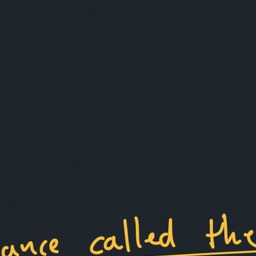 ance called the